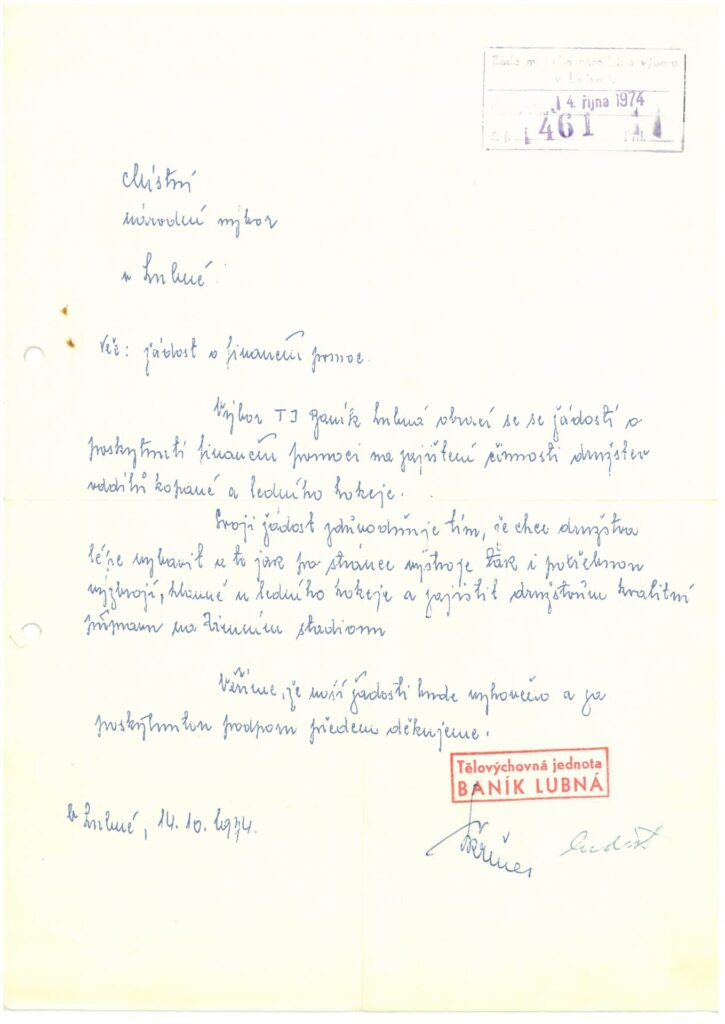 Rada místního národního výboru
v Lubné
14. října 1974
č. j. 461 Příl.
Místní
národní výbor
v Lubné
Věc: žádost o finanční pomoc.
Výbor TJ Baník Lubná obrací se se žádostí o
poskytnutí finanční pomoci na zajištění činnosti družstev
oddílů kopané a ledního hokeje.
Svoji žádost zdůvodňuje tím, že chce družstva
lépe vybavit a to jak po stránce výstroje tak i potřebnou
výzbrojí, hlavně u ledního hokeje a zajistit družstvům kvalitní
přípravu na zimním stadionu
Věříme, že naší žádosti bude vyhověno a za
poskytnutou podporu předem děkujeme.
Tělovýchovná jednota
BANÍK LUBNÁ
V Lubné, 14. 10. 1974.